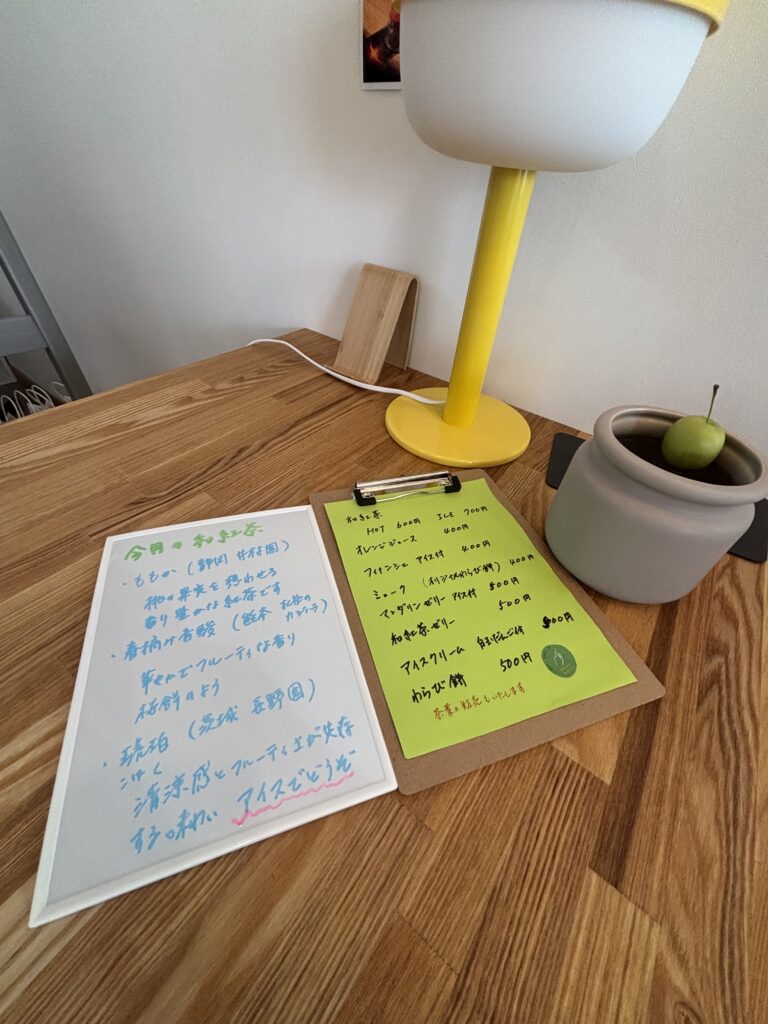 今月の和紅茶
・ももか(静岡 井村園)
桃の果実を想わせる
香り豊かな紅茶です
・春摘み香駿(熊本 お茶のカジハラ)
華やかでフルーティな香り
桜餅のよう
・琥珀(茨城 長野園)
こはく
清涼感とフルーティさが共存
する味わい アイスでどうぞ
和紅茶
HOT 600円 ICE 700円
オレンジジュース 400円
フィナンシェ アイス付 400円
ミニーク (オリジナルわらび餅) 400円
マンダリンゼリー アイス付 500円
和紅茶ゼリー 500円
アイスクリーム 白玉だんご付 500円
わらび餅 500円
茶葉の販売もいたします